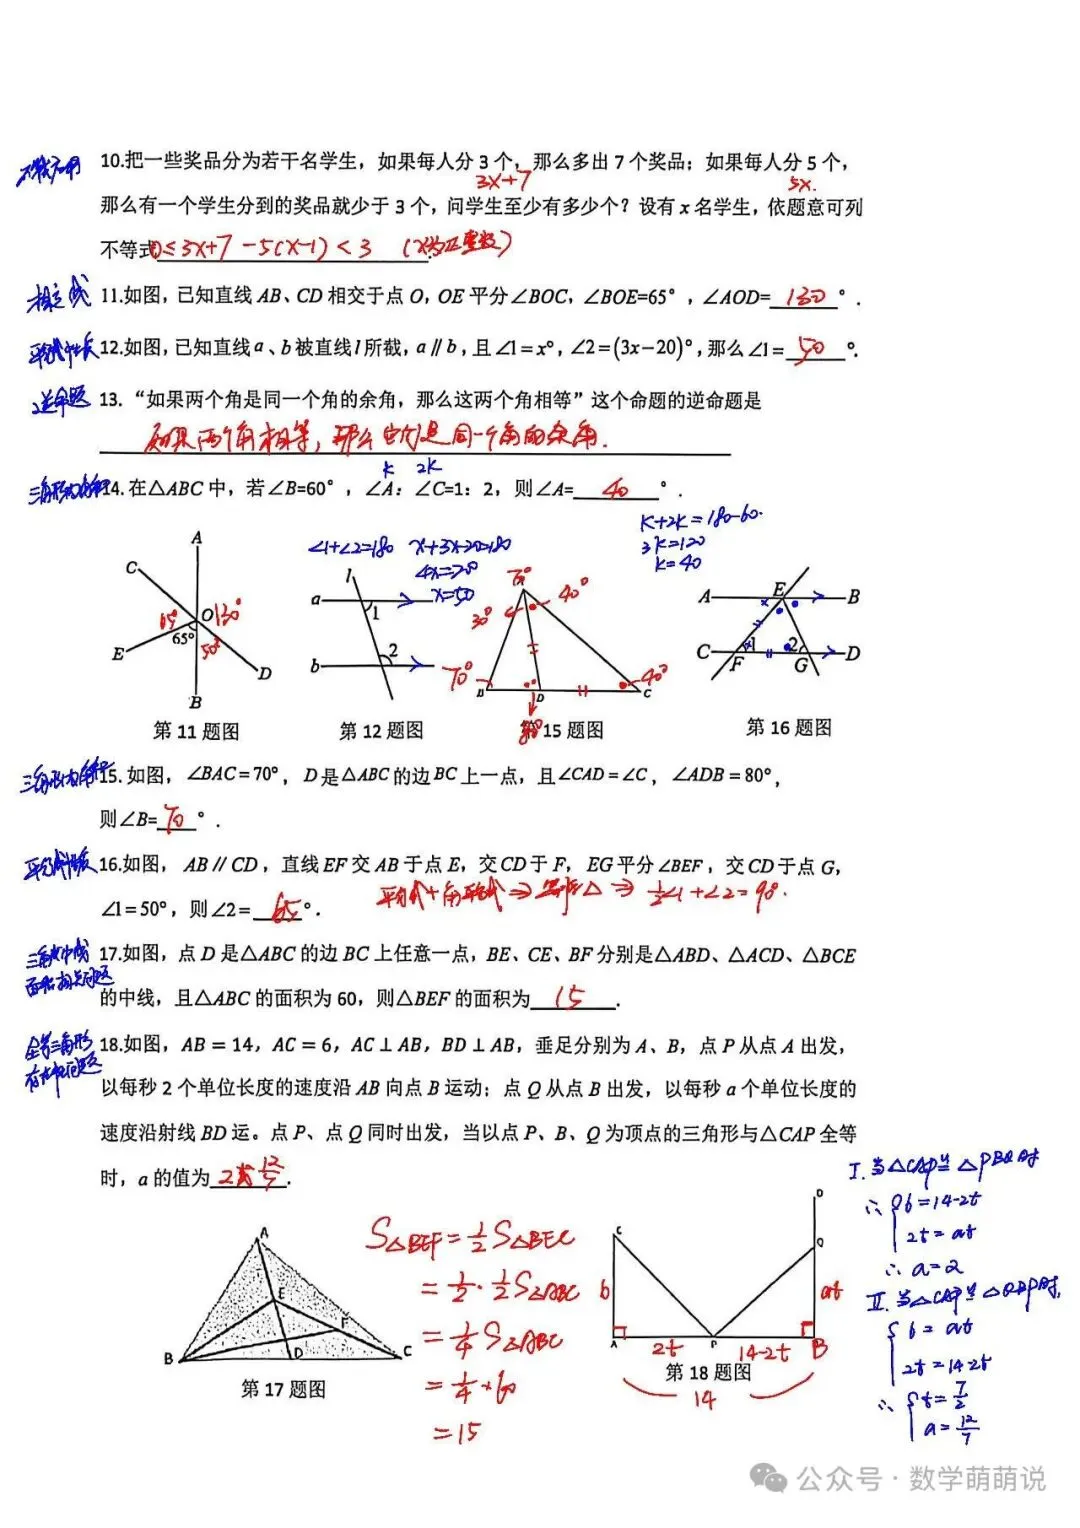 10.把一些奖品分为若干名学生，如果每人分 3 个，那么多出 7 个奖品；如果每人分 5 个，
3x+7
5x.
那么有一个学生分到的奖品就少于 3 个，问学生至少有多少个？设有 x 名学生，依题意可列
不等式 0≤3x+7-5(x-1)<3 (x为正整数)
相交线
11.如图，已知直线 AB、CD 相交于点 O，OE 平分∠BOC，∠BOE=65°，∠AOD= 130 °.
12.如图，已知直线 a、b 被直线 l 所截，a∥b，且 ∠1=x°，∠2=(3x-20)°，那么∠1= 50 °.
逆命题
13. “如果两个角是同一个角的余角，那么这两个角相等”这个命题的逆命题是
如果两个角相等，那么它们是同一个角的余角.
k 2k
三角形内角和
14.在△ABC 中，若∠B=60°，∠A：∠C=1：2，则∠A= 40 °.
k+2k=180-60.
3k=120
k=40
∠1+∠2=180
x+3x-20=180
x=50
A
C
65°
O
130°
65°
50°
E
D
B
l
a
1
b
2
70°
40°
30°
70°
B
D
C
40°
80°
A
E
B
C
F
1
2
G
D
第 11 题图
第 12 题图
第 15 题图
第 16 题图
三角形内角和
15.如图，∠BAC=70°，D 是△ABC 的边 BC 上一点，且∠CAD=∠C，∠ADB=80°，
则∠B= 70 °.
16.如图， AB∥CD，直线 EF 交 AB 于点 E，交 CD 于 F，EG 平分∠BEF，交 CD 于点 G，
∠1=50°，则∠2= 65 °.
平行线+角平分线⇒等腰△⇒½∠1+∠2=90°.
三角形中线
面积相关问题
17.如图，点 D 是△ABC 的边 BC 上任意一点，BE、CE、BF 分别是△ABD、△ACD、△BCE
的中线，且△ABC 的面积为 60，则△BEF 的面积为 15 .
全等三角形
18.如图，AB = 14，AC = 6，AC ⊥ AB，BD ⊥ AB，垂足分别为 A、B，点 P 从点 A 出发，
以每秒 2 个单位长度的速度沿 AB 向点 B 运动；点 Q 从点 B 出发，以每秒 a 个单位长度的
速度沿射线 BD 运。点 P、点 Q 同时出发，当以点 P、B、Q 为顶点的三角形与△CAP 全等
时，a 的值为 2或12/7 .
A
E
F
B
D
C
第 17 题图
S△BEF=½S△BEC
=½·½S△ABC
=¼S△ABC
=¼×60
=15
D
C
Q
6
at
A
2t
P
14-2t
B
第 18 题图
14
I.当△CAP≌△PBQ时
∴ 6=14-2t
2t=at
∴ a=2
II.当△CAP≌△QBP时,
6=at
2t=14-2t
∴ t=7/2
a=12/7
公众号·数学萌萌说